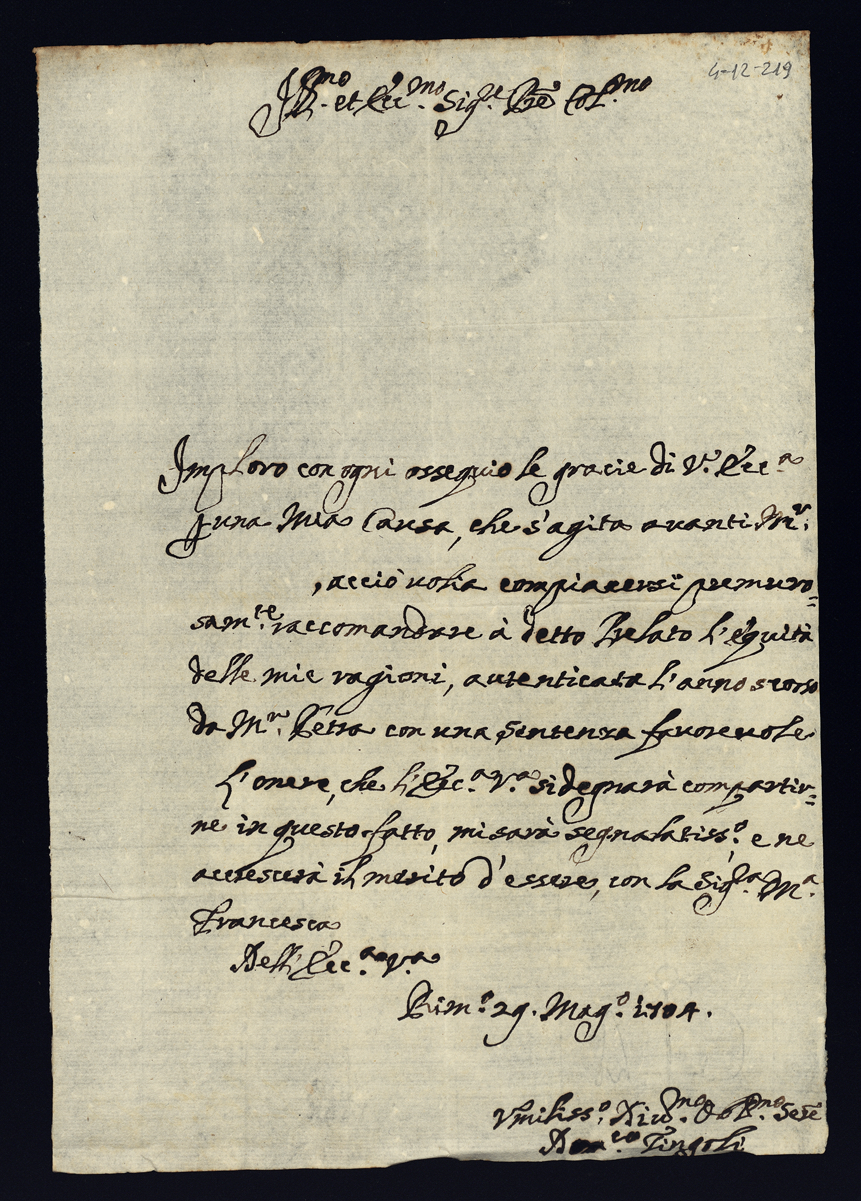 4-12-219
Ill.mo et Ecc.mo Sig.re P̄rē Col.mo
Imploro con ogni ossequio le gracie di V.a Ecc.a
p una Mia Causa, che s'agita avanti M.r
, acciò volia compiacersi premuro=
sam.te raccomandare à detto Prelato l'équità
delle mie ragioni, autenticata l'anno scorso
da M.r Petra con una Sentenza favorevole.
L'onere, che l'Ecc.a V.a si degnarà compartir=
ne in questo fatto, mi sarà segnalatiss.o, e ne
accrescerà il merito d'essere, con la Sig.ra M.a
Francesca
Dell'Ecc.a V.a
Rim.o 29. Mag.o 1704.
Vmiliss.o Div.mo Obl.mo Serē
Dom.co Tingoli